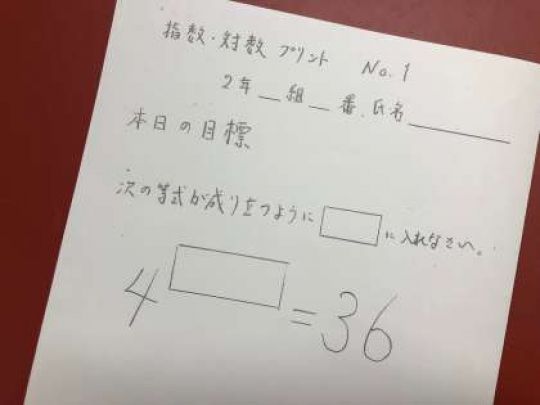 指数・対数 プリント No.1
2年__組__番.氏名________
本日の目標
次の等式が成り立つように□に入れなさい。
4□=36